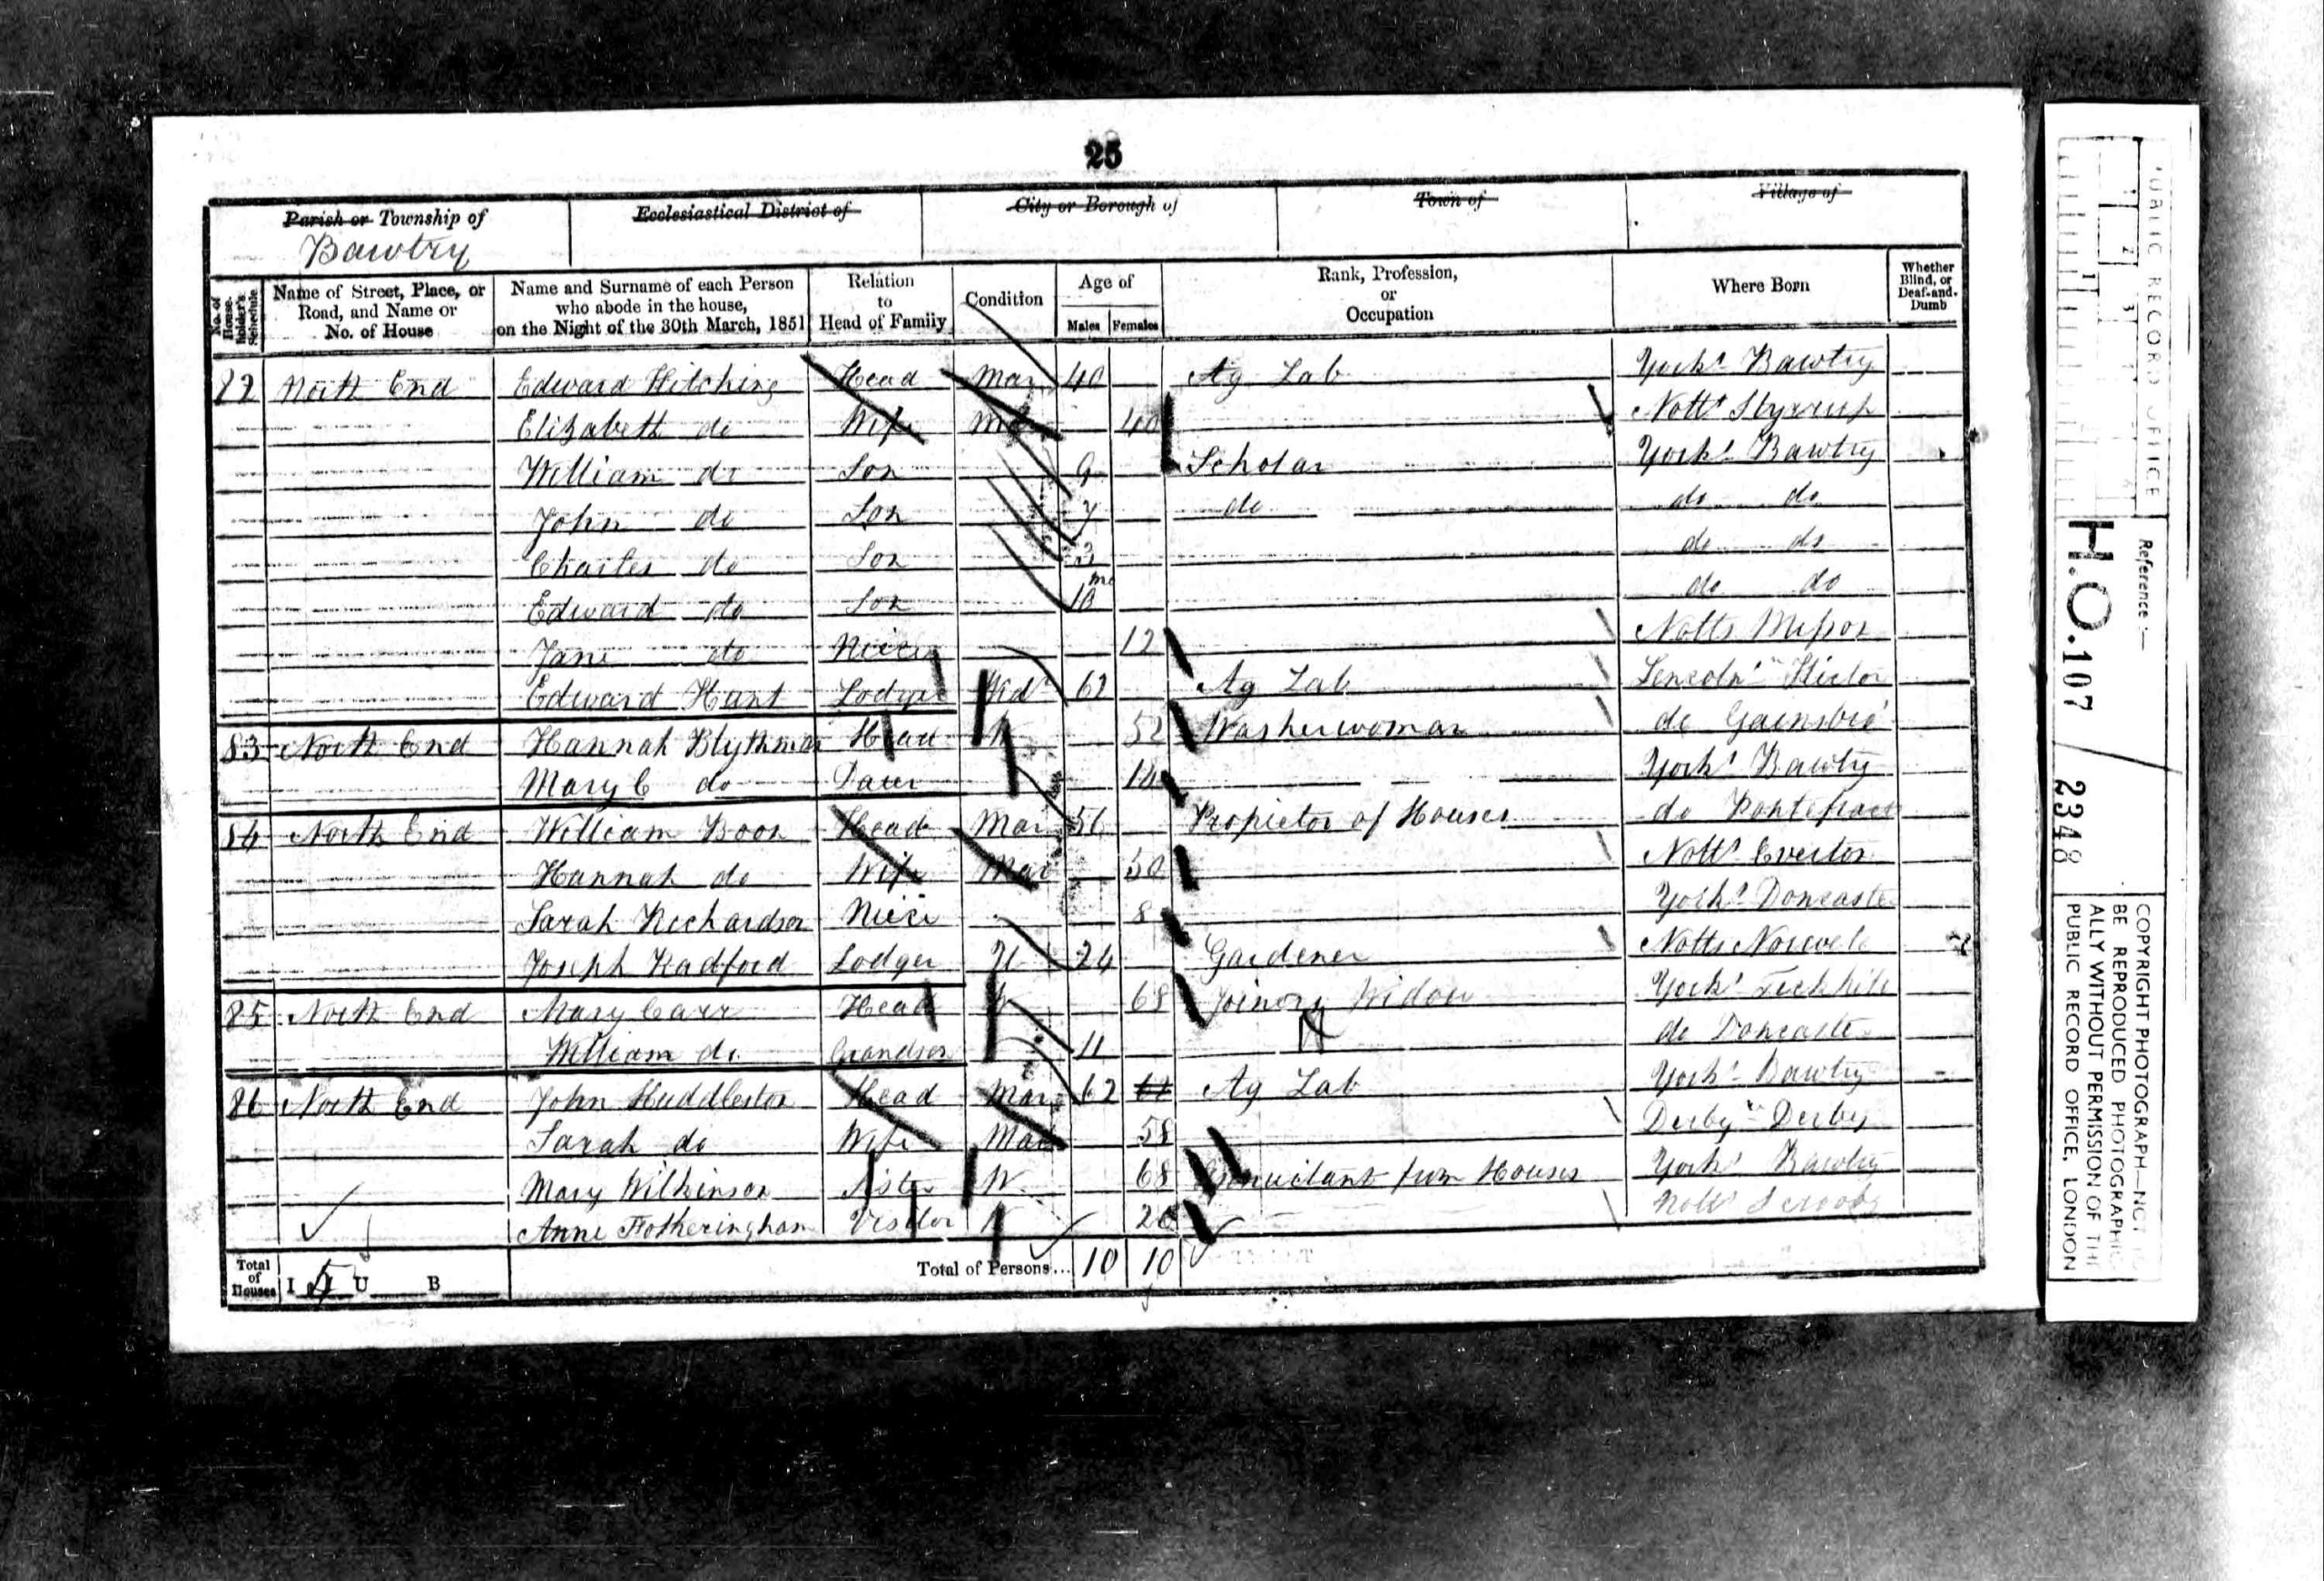 25
Parish or Township of Ecclesiastical District of City or Borough of Town of Village of
Bawtry
No. of House-holder's Schedule Name of Street, Place, or Road, and Name or No. of House Name and Surname of each Person who abode in the house, on the Night of the 30th March, 1851 Relation to Head of Family Condition Age of Males Females Rank, Profession, or Occupation Where Born Whether Blind, or Deaf-and-Dumb
82 North End Edward Hitching Head Mar 40 Ag Lab Yorks Bawtry
Elizabeth do Wife Mar 40 Notts Styrrup
William do Son 9 Scholar Yorks Bawtry
John do Son 7 do do do
Charles do Son 3 do do
Edward do Son 10 mo do do
Jane do Niece 12 Notts Misson
Edward Hant Lodger Widr 62 Ag Lab Lincoln
83 North End Hannah Blythman Head W 52 Washerwoman do Gainsbro
Mary C do Daur 14 Yorks Bawtry
84 North End William Boon Head Mar 56 Propietor of Houses do Pontefract
Hannah do Wife Mar 50 Notts Everton
Sarah Richardson Niece 8 Yorks Doncaster
Joseph Radford Lodger U 24 Gardener Notts Norwell
85 North End Mary Carr Head W 68 Joiners Widow Yorks Tickhill
William do Grandson 11 do Doncaster
86 North End John Huddleston Head Mar 62 62 Ag Lab Yorks Bawtry
Sarah do Wife Mar 58 Derby Derby
Mary Wilkinson Sister W 68 Annuitant from Houses Yorks Bawtry
Anne Fotheringham Visitor 26 Notts Scrooby
Total of Houses I 5 U B Total of Persons... 10 10
PUBLIC RECORD OFFICE
1 2 3
Reference :—
H.O. 107 / 2348
COPYRIGHT PHOTOGRAPH—NOT TO
BE REPRODUCED PHOTOGRAPHIC
ALLY WITHOUT PERMISSION OF THE
PUBLIC RECORD OFFICE, LONDON